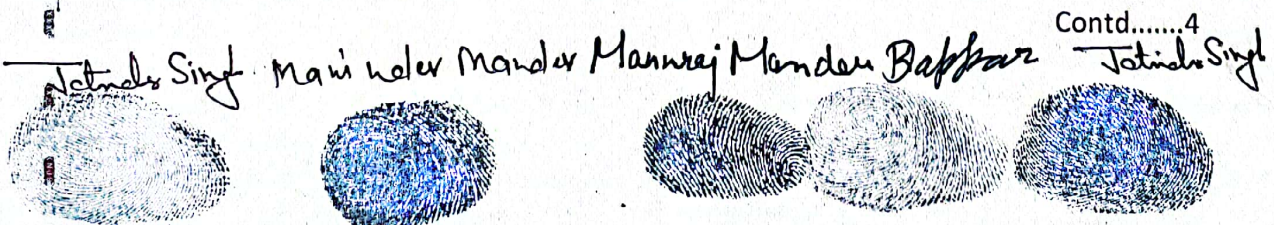 Contd.......4
Jatinder Singh Maninder Mander Mannraj Mander Bappar Jatinder Singh